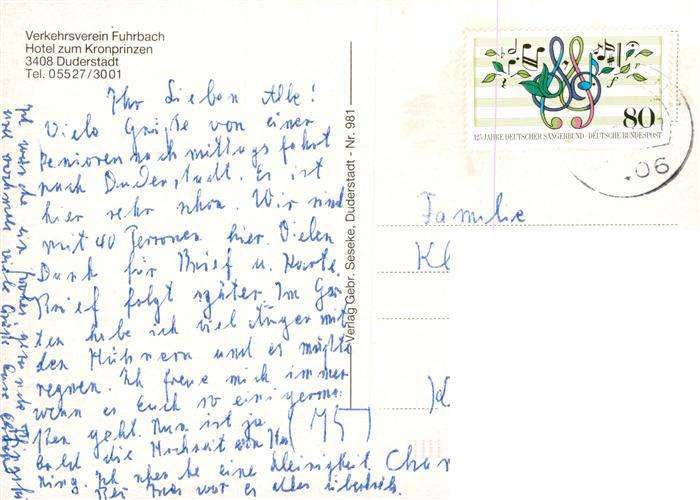 Verkehrsverein Fuhrbach
Hotel zum Kronprinzen
3408 Duderstadt
Tel. 05527/3001
Ihr Lieben Alle!
Viele Grüße von einer
Seniorennachmittagsfahrt
nach Duderstadt. Es ist
hier sehr schön. Wir sind
mit 40 Personen hier. Vielen
Dank für Brief u. Karte.
Brief folgt später. Im Gar
ten habe ich viel Ärger mit
den Hühnern und es müßte
regnen. Ich freue mich immer
wenn es Euch so einigerma
ßen geht. Nun ist ja
bald die Hochzeit von Hen
ning. Ich eine Kleinigkeit.
Bei war es alles
Ich wünsche ein frohes gesundes Pfingst
und nochmals viele Grüße Eure
Verlag Gebr. Seseke, Duderstadt - Nr. 981
80
125 JAHRE DEUTSCHER SÄNGERBUND · DEUTSCHE BUNDESPOST
.06
Familie
Kl